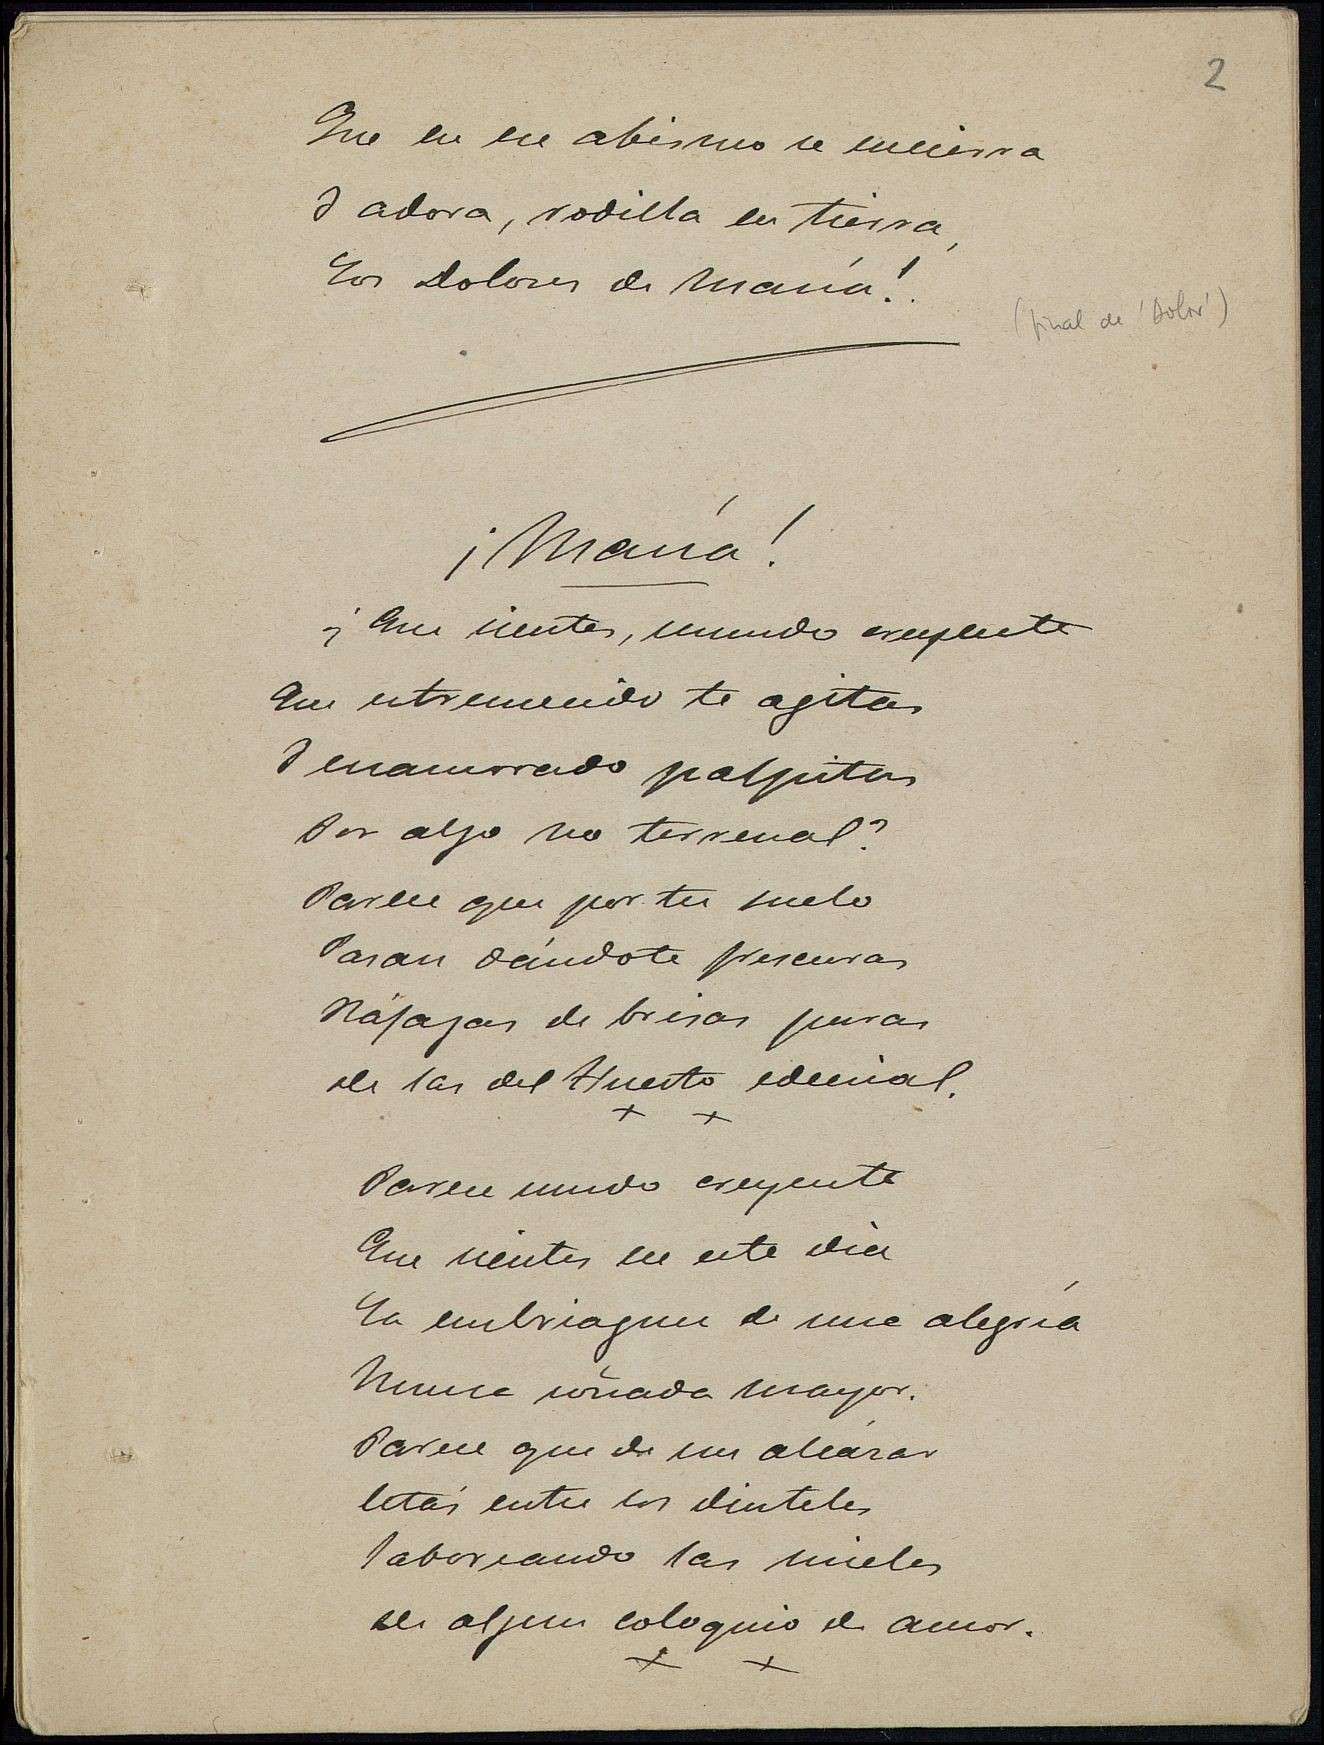 2
Que en ese abismo se encierra
Y adora, rodilla en tierra,
Los Dolores de María!.
(final de 'Dolor')
¡María!
¿Que sientes, mundo creyente
Que estremecido te agitas
Y enamorado palpitas
Por algo no terrenal?
Parece que por tu suelo
Pasan dándote frescuras
Ráfagas de brisas puras
de las del Huerto edenial.
+ +
Parece mundo creyente
Que sientes en este día
La embriaguez de una alegría
Nunca soñada mayor.
Parece que de un alcázar
Estás entre los dinteles
Saboreando las mieles
de algun coloquio de amor.
+ +